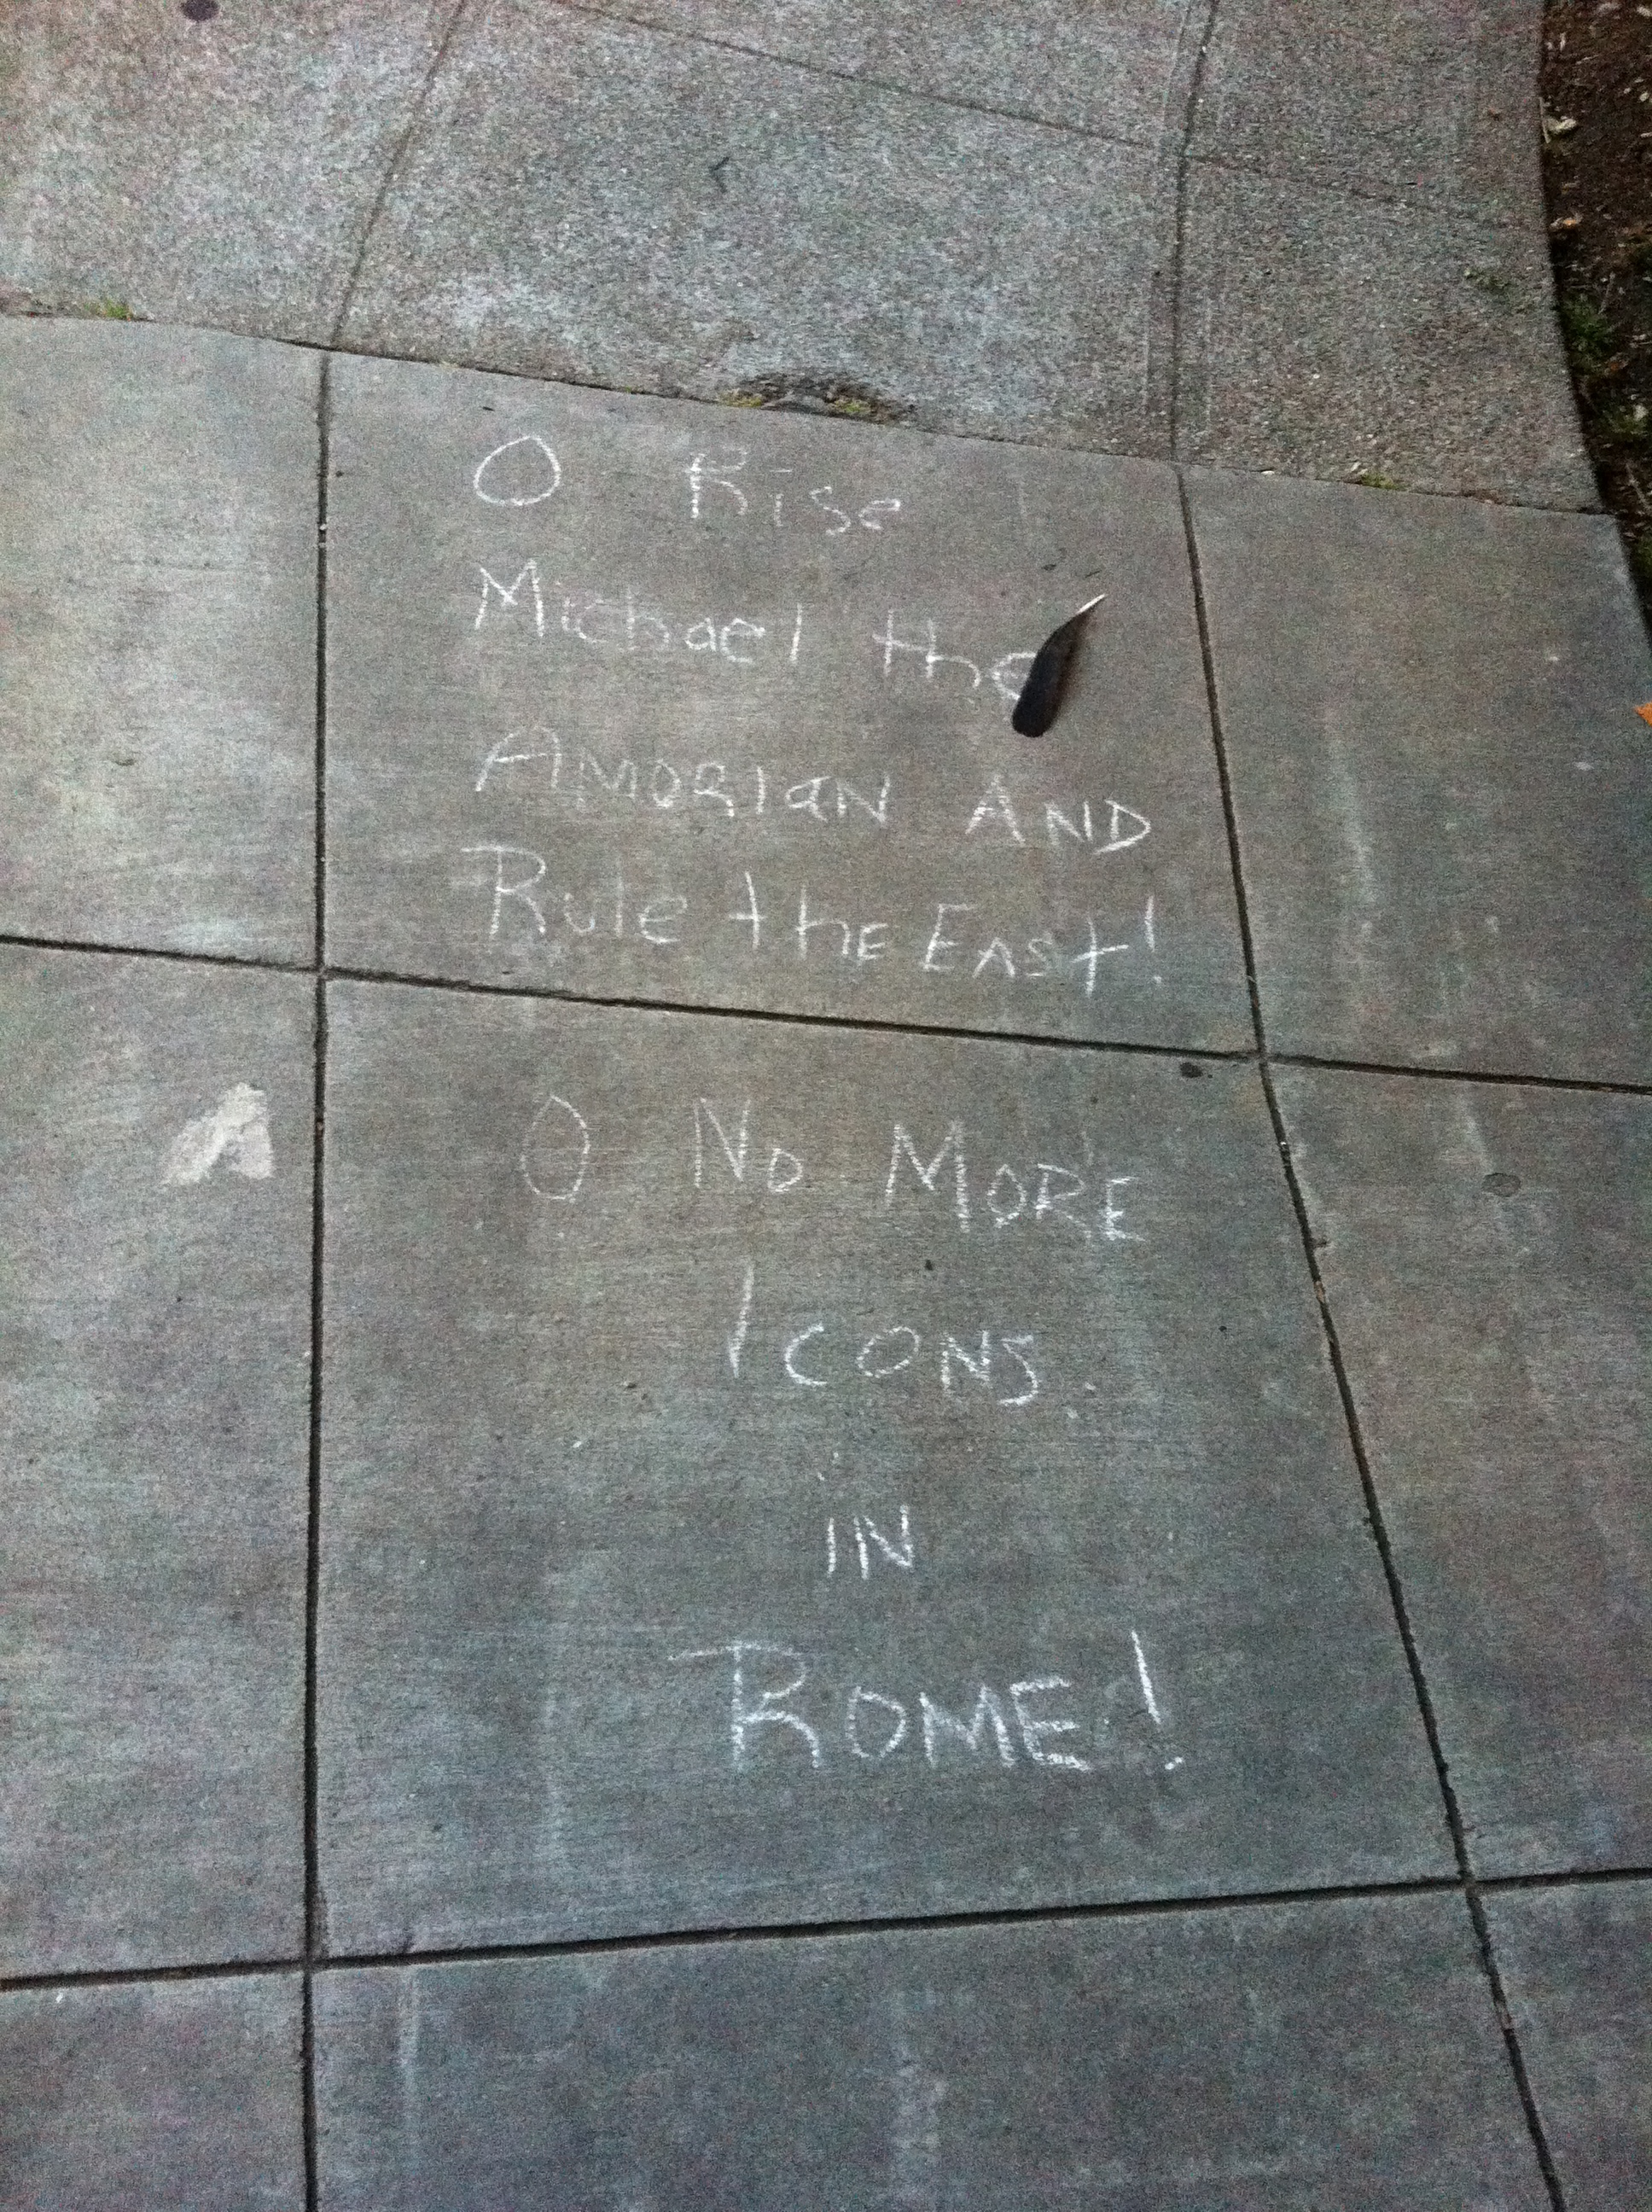 O Rise
Michael the
AMORIaN AND
Rule thE EAst!
O No MORE
ICONS
IN
ROME!